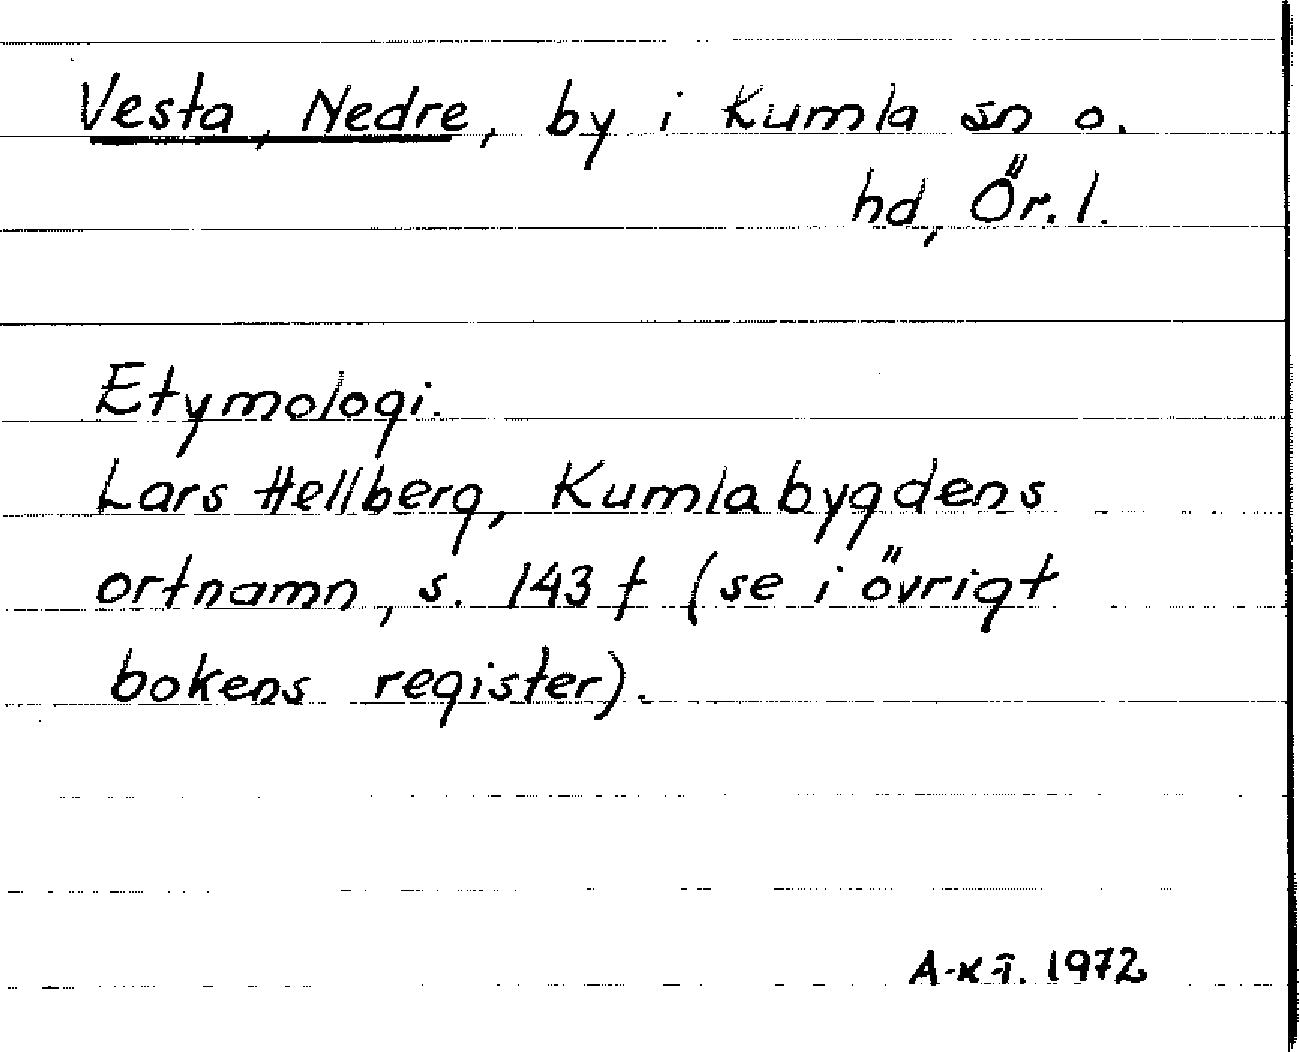 Vesta, Nedre, by i Kumla sn o.
hd, Ör. l.
Etymologi.
Lars Hellberg, Kumlabygdens
ortnamn, s. 143 f (se i övrigt
bokens register).
1972